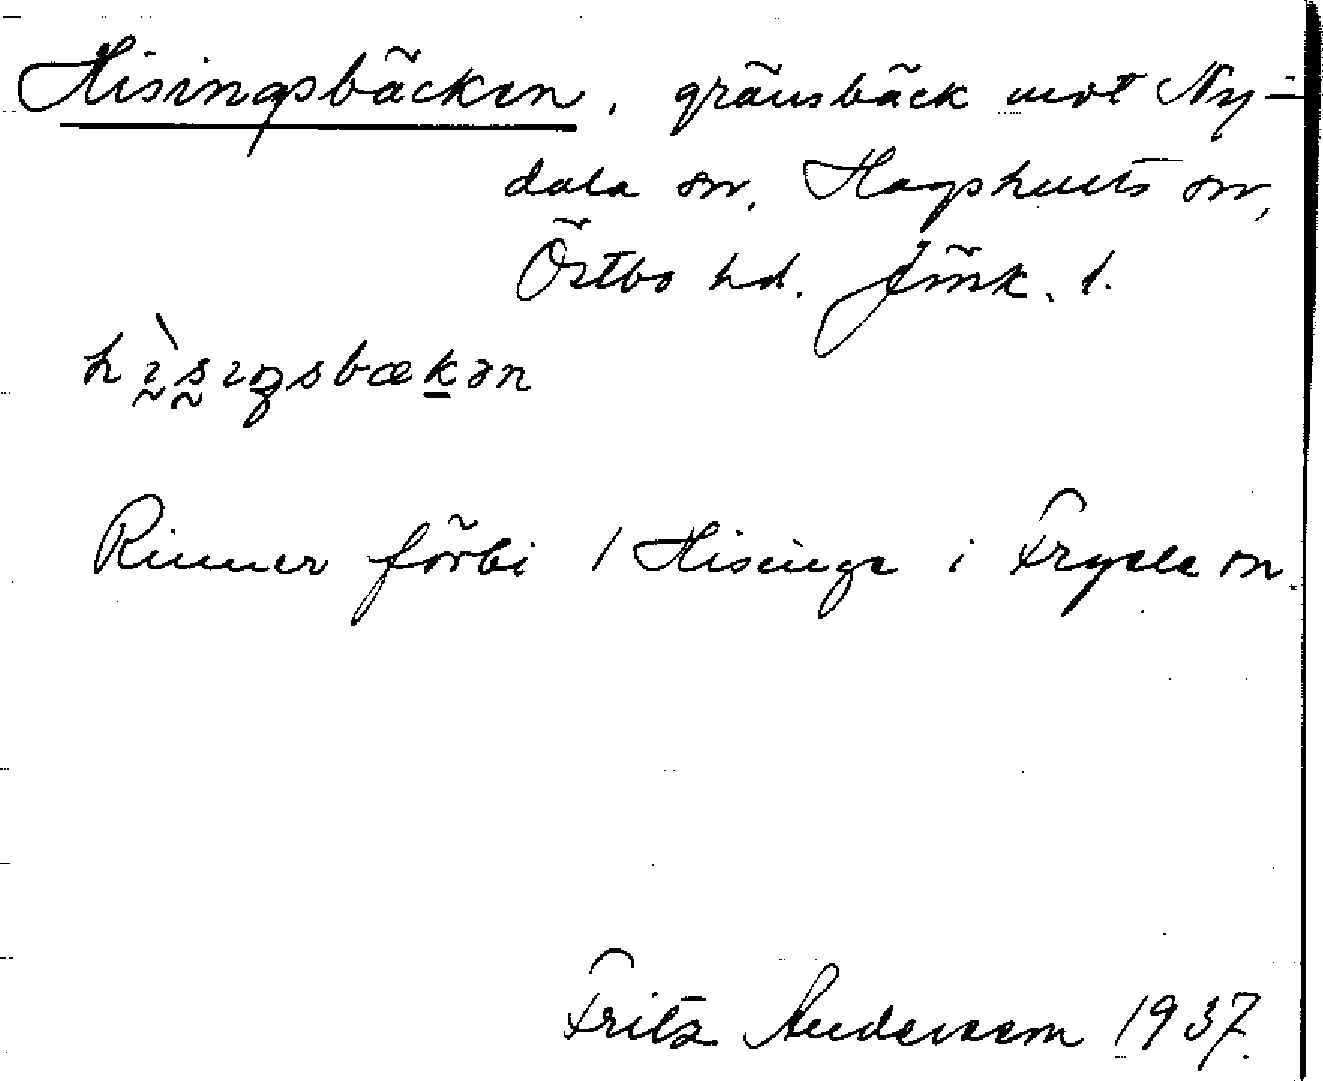 Hisingsbäcken, gränsbäck mot Ny-
dala sn, Hagshults sn,
Östbo hd. Jönk. l.
hìsıŋsbækən
Rinner förbi / Hisinge i Fryele sn.
Fritz Andersson 1937.